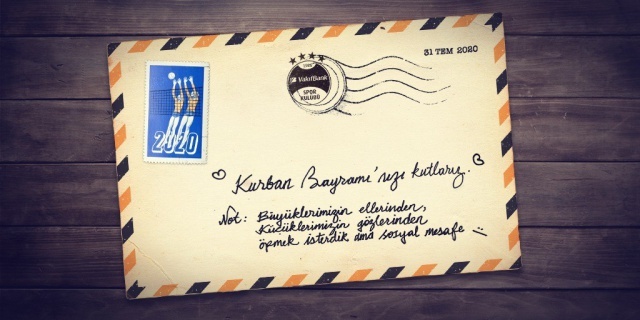 31 TEM 2020
VakıfBank
SPOR
KULÜBÜ
2020
Kurban Bayramı'nızı kutlarız.
Not: Büyüklerimizin ellerinden,
Küçüklerimizin gözlerinden
öpmek isterdik ama sosyal mesafe :)